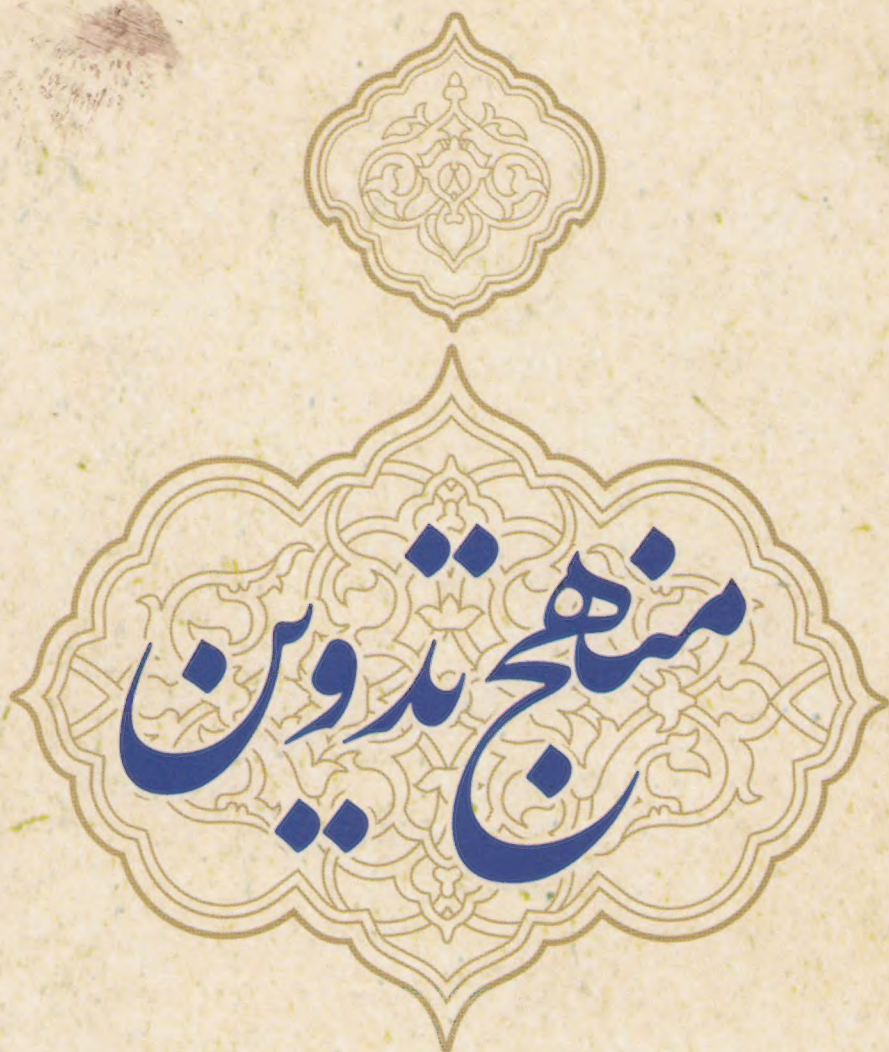 منهج تدوین